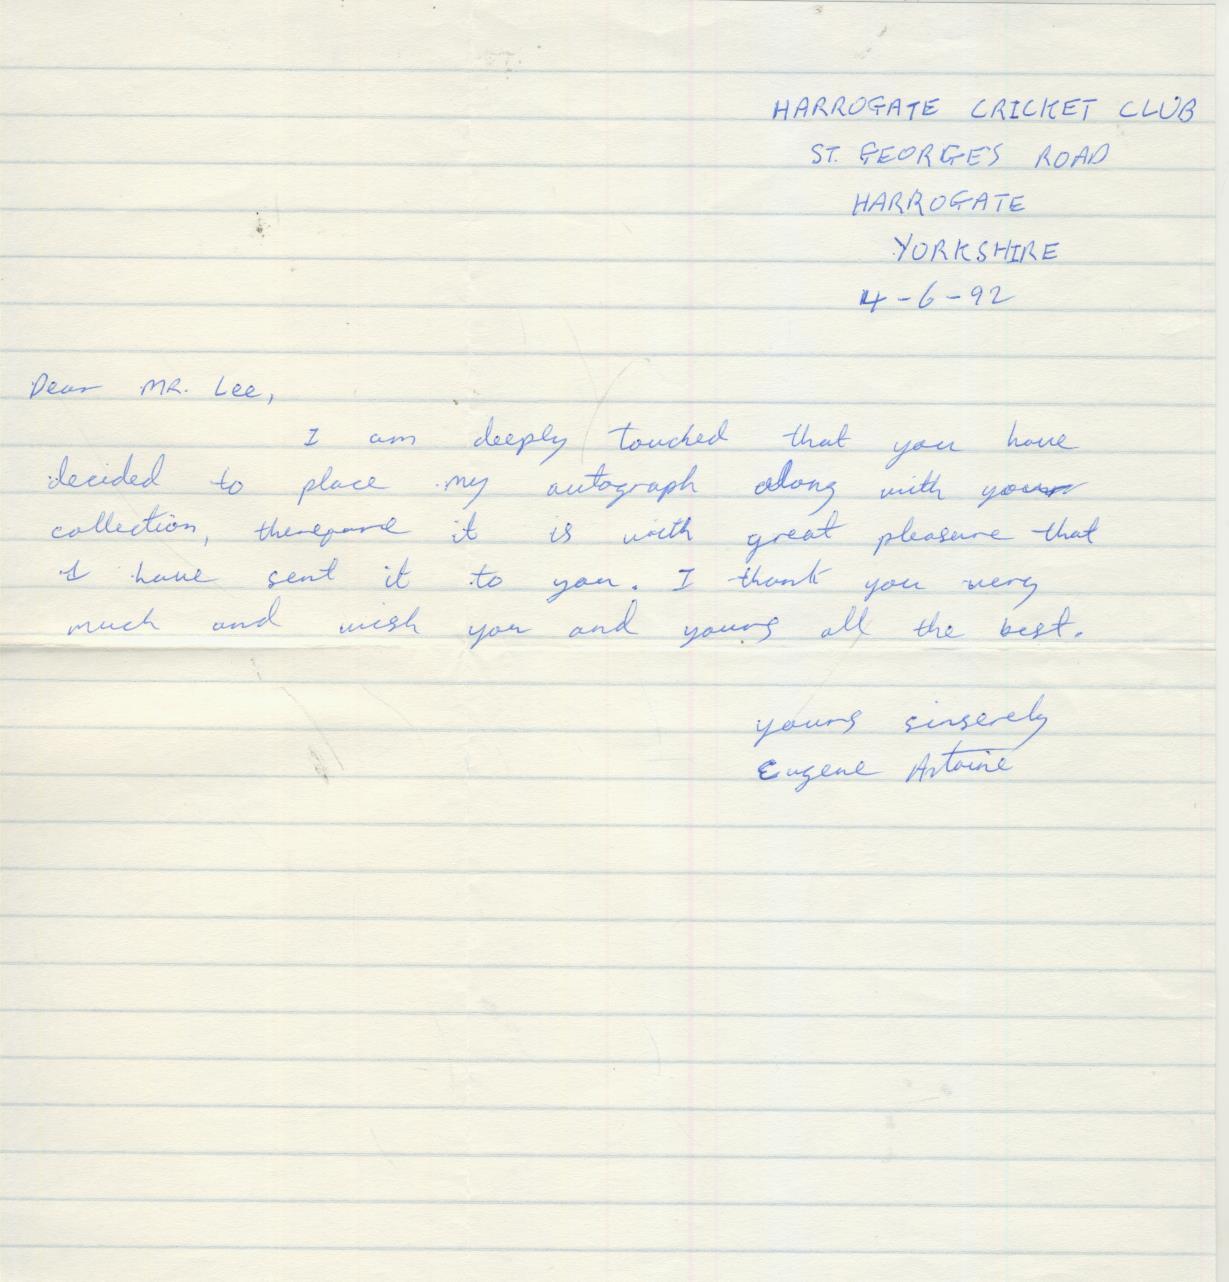 HARROGATE CRICKET CLUB
ST. GEORGE'S ROAD
HARROGATE
YORKSHIRE
4-6-92
Dear MR. Lee,
I am deeply touched that you have
decided to place my autograph along with your
collection, therefore it is with great pleasure that
I have sent it to you. I thank you very
much and wish you and yours all the best.
yours sinserely
Eugene Antoine